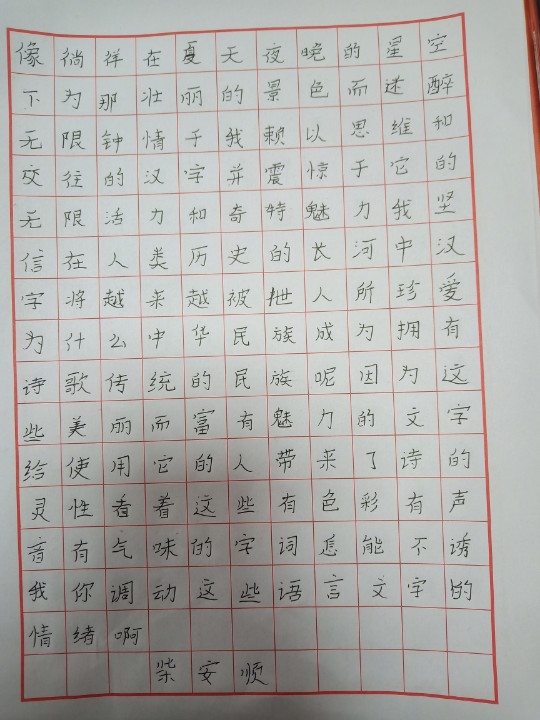 像徜徉在夏天夜晚的星空
下为那壮丽的景色而迷醉
无限钟情于我赖以思维和
交往的汉字并震惊于它的
无限活力和奇特魅力我坚
信在人类历史的长河中汉
字将越来越被世人所珍爱
为什么中华民族成为拥有
诗歌传统的民族呢因为这
些美丽而富有魅力的文字
给使用它的人带来了诗的
灵性看着这些有色彩有声
音有气味的字词怎能不诱
我你调动这些语言文字的
情绪啊
柴安顺